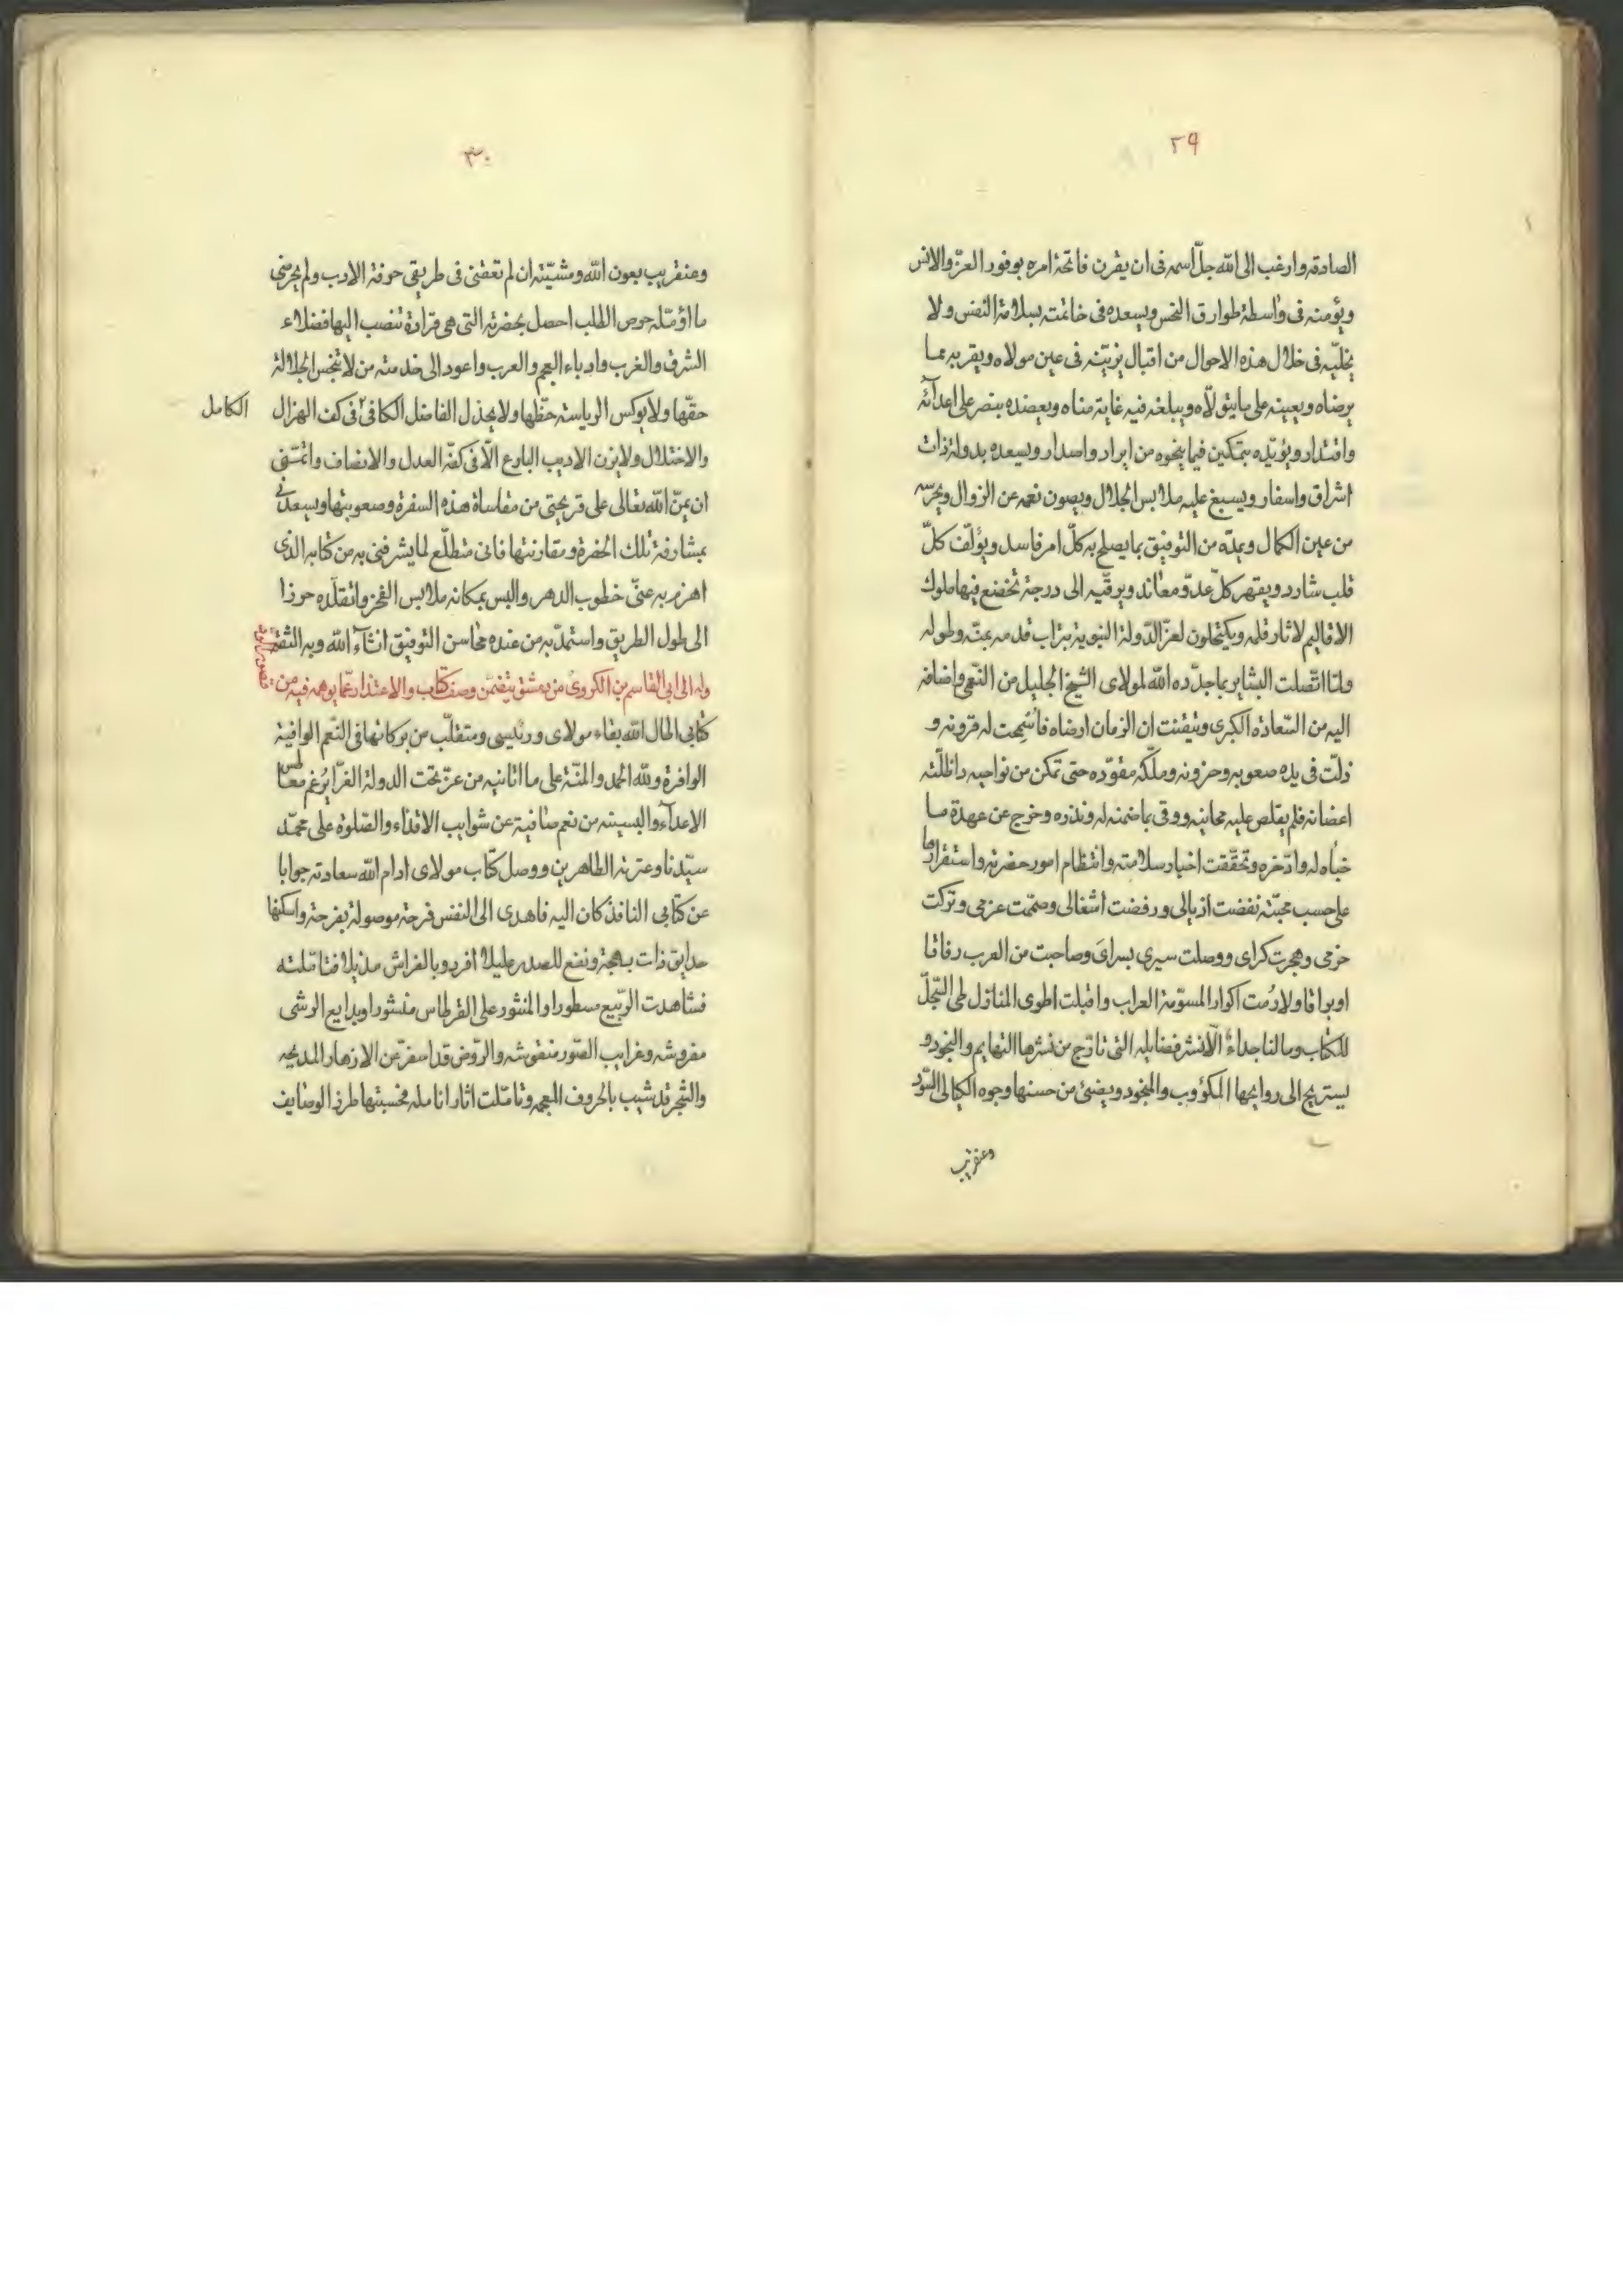 ٢٩
الصادقه وارغب الى الله جلّ اسمه فى ان يقرن فاتحة امره بوفور العزّ والانس
ويؤمنه فى واسطة طوارق النحس ويسعده فى خاتمته بسلامة النفس ولا
يخليّه فى خلال هذه الاحوال من اقبال يزيّنه فى عين مولاه ويقربه مما
يرضاه ويعينه على ما يتولّاه ويبلغه فيه غاية مناه ويعضده بنصر على اعدآئه
واقتدار ويؤيّده بتمكين فيما ينحوه من ايراد واصدار ويسعده بدولة ذات
اشراق واسفار ويسبغ عليه ملابس الجلال ويصون نعمه عن الزوال ويحرسه
من عين الكمال ويمدّه من التوفيق بما يصلح به كلّ امر فاسد ويؤلّف كلّ
قلب شارد ويقهر كلّ عدوّ ومعاند ويرقّيه الى درجة تخضع فيها ملوك
الاقاليم لاثار قلمه ويكتحلون لعزّ الدّولة النبوية بتراب قدمه بمنّه وطوله
ولمّا اتّصلت البشاير بما جدّده الله لمولاى الشيخ الجليل من النّعمى واضافه
اليه من السّعادة الكبرى وتيقنت ان الزمان ارضاه فاسمحت له قرونه و
ذلّت فى يده صعوبه وحزونه وملّكه مقوّده حتى تمكن من نواحيه واظلّته
اغصانه فلم يقلص عليه مجانيه ووفى بما ضمنه له ونذره وخرج عن عهدة ما
خبأه له وادّخره وتحقّقت اخبار سلامته وانتظام امور حضرته واستقرارها
على حسب محبّته نفضت اذيالى ورفضت اشغالى وصمّمت عزمى وتركت
حزمى وهجرت كراى ووصلت سيرى بسراى وصاحبت من العرب رفاقا
اوبراقا ولازمت اكوار المسوّمة العراب واقبلت اطوى المنازل طى السّجلّ
للكتاب وما لنا حداء الّا نشر فضايله التى تتارّج من نشرها التهايم والنجود و
يستريح الى روايحها المكؤوب والمنجود ويضئ من حسنها وجوه الليالى السّود
وعنقريب
٣٠
وعنقريب بعون الله ومشيّته ان لم تعقنى فى طريقى حوفة الادب ولم يحرمنى
ما اؤمّله حرص الطلب احصل بحضرته التى هى قرارة تنصب اليها فضلاء
الشرق والغرب وادباء العجم والعرب واعود الى خدمته من لا يبخس الجلالة
حقّها ولا يوكس الرياسة حظّها ولا يخذل الفاضل الكافى فى كف الهزال
الكامل
والاختلال ولا يزن الاديب البارع الّا فى كفّه العدل والانصاف واتمنّى
ان يمنّ الله تعالى على قريحتى من مقاساة هذه السفرة وصعوبتها ويسعدنى
بمشارفة تلك الحضرة ومقارنتها فانى متطلّع لما يشرفنى به من كتابه الذى
اهزم به عنّى خطوب الدهر والبس بمكانه ملابس الفخر واتقلّده حرزا
الى طول الطريق واستمدّ به من عنده محاسن التوفيق انشآء الله وبه الثقة
وله الى ابى القاسم بن الكروى من دمشق يتضمّن وصف كتاب والاعتذار عمّا يوهمه فيه من
كتابى اطال الله بقاء مولاى ورئيسى ومتقلّب من بركاتها فى النّعم الوافية
الوافرة ولله الحمد والمنّة على ما اتانيه من عزّ تحت الدولة الغرّا يُرغم معاطس
الاعدآء والبسنيه من نعم صافية عن شوايب الاقذاء والصّلوة على محمّد
سيّدنا وعترته الطاهرين ووصل كتاب مولاى ادام الله سعادته جوابا
عن كتابى النافذ كان اليه فاهدى الى النفس فرحة موصولة بفرحة واسكنها
حدايق ذات بهجة ونفع للصدر غليلا افردو بالفراش مذيلا فتامّلته
فشاهدت الرّبيع مسطورا والمنثور على القرطاس منشورا وبدايع الوشى
مفروشه وغرايب الصّور منقوشه والرّوض قد اسفر عن الازهار المديحه
والشجر قد شيب بالحروف المعجمه وتامّلت اثار انامله فحسبتها طرز الوصايف